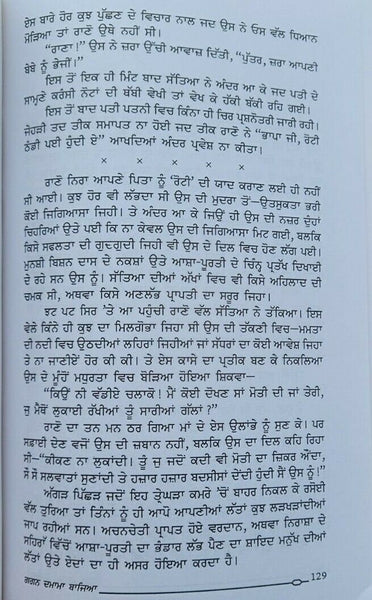 ਏਸ ਬਾਰੇ ਹੋਰ ਕੁਝ ਪੁੱਛਣ ਦੇ ਵਿਚਾਰ ਨਾਲ ਜਦ ਉਸ ਨੇ ਓਸ ਵੱਲ ਧਿਆਨ
ਮੋੜਿਆ ਤਾਂ ਰਾਣੋ ਉਥੇ ਨਹੀਂ ਸੀ।
"ਰਾਣਾ।" ਉਸ ਨੇ ਜ਼ਰਾ ਉੱਚੀ ਆਵਾਜ਼ ਦਿੱਤੀ, "ਪੁੱਤਰ, ਜ਼ਰਾ ਆਪਣੀ
ਬੇਬੇ ਨੂੰ ਭੇਜੀਂ।"
ਇਸ ਤੋਂ ਇਕ ਹੀ ਮਿੰਟ ਬਾਦ ਸੱਤਿਆ ਨੇ ਅੰਦਰ ਆ ਕੇ ਜਦ ਪਤੀ ਦੇ
ਸਾਮ੍ਹਣੇ ਕਰਸੀ ਨੋਟਾਂ ਦੀ ਥੱਬੀ ਵੇਖੀ ਤਾਂ ਵੇਖ ਕੇ ਹੱਕੀ ਬੱਕੀ ਰਹਿ ਗਈ।
ਇਸ ਤੋਂ ਬਾਦ ਪਤੀ ਪਤਨੀ ਵਿਚ ਕਿੰਨਾ ਹੀ ਚਿਰ ਪ੍ਰਸ਼ਨੋਤਰੀ ਜਾਰੀ ਰਹੀ।
ਜੇਹੜੀ ਤਦ ਤੀਕ ਸਮਾਪਤ ਨਾ ਹੋਈ ਜਦ ਤੀਕ ਰਾਣੋ ਨੇ "ਭਾਪਾ ਜੀ, ਰੋਟੀ
ਠੰਡੀ ਪਈ ਹੁੰਦੀ ਏ" ਆਖਦਿਆਂ ਅੰਦਰ ਪ੍ਰਵੇਸ਼ ਨਾ ਕੀਤਾ।
× × × × ×
ਰਾਣੋ ਨਿਰਾ ਆਪਣੇ ਪਿਤਾ ਨੂੰ 'ਰੋਟੀ' ਦੀ ਯਾਦ ਕਰਾਣ ਲਈ ਹੀ ਨਹੀਂ
ਸੀ ਆਈ। ਕੁਝ ਹੋਰ ਵੀ ਲੱਭਦਾ ਸੀ ਉਸ ਦੀ ਮੁਦਰਾ ਤੋਂ—ਉਤਸੁਕਤਾ ਭਰੀ
ਕੋਈ ਜਿਗਿਆਸਾ ਜਿਹੀ। ਤੇ ਅੰਦਰ ਆ ਕੇ ਜਿਉਂ ਹੀ ਉਸ ਦੀ ਨਜ਼ਰ ਦੁੰਹਾਂ
ਚਿਹਰਿਆਂ ਉਤੇ ਪਈ ਕਿ ਨਾ ਕੇਵਲ ਉਸ ਦੀ ਜਿਗਿਆਸਾ ਮਿਟ ਗਈ, ਬਲਕਿ
ਕਿਸੇ ਸਫਲਤਾ ਦੀ ਗੁਦਗੁਦੀ ਜਿਹੀ ਵੀ ਉਸ ਦੇ ਦਿਲ ਵਿਚ ਹੋਣ ਲੱਗ ਪਈ।
ਮੁਨਸ਼ੀ ਬਿਸ਼ਨ ਦਾਸ ਦੇ ਨਕਸ਼ਾਂ ਉਤੇ ਆਸ਼ਾ-ਪੂਰਤੀ ਦੇ ਚਿੰਨ੍ਹ ਪ੍ਰਤੱਖ ਦਿਖਾਈ
ਦੇ ਰਹੇ ਸਨ ਉਸ ਨੂੰ। ਸੱਤਿਆ ਦੀਆਂ ਅੱਖਾਂ ਵਿਚ ਵੀ ਕਿਸੇ ਅਹਿਲਾਦ ਦੀ
ਚਮਕ ਸੀ, ਅਥਵਾ ਕਿਸੇ ਅਣਲੱਭ ਪ੍ਰਾਪਤੀ ਦਾ ਸਰੂਰ ਜਿਹਾ।
ਝਟ ਪਟ ਸਿਰ 'ਤੇ ਆ ਪਹੁੰਚੀ ਰਾਣੋ ਵੱਲ ਸੱਤਿਆ ਨੇ ਤੱਕਿਆ। ਇਸ
ਵੇਲੇ ਕਿੰਨੇ ਹੀ ਕੁਝ ਦਾ ਮਿਲਗੋਭਾ ਜਿਹਾ ਸੀ ਉਸ ਦੀ ਤੱਕਣੀ ਵਿਚ—ਮਮਤਾ
ਦੀ ਨਦੀ ਵਿਚ ਉਠਦੀਆਂ ਲਹਿਰਾਂ ਜਿਹੀਆਂ ਜਾਂ ਸੱਧਰਾਂ ਦਾ ਕੋਈ ਆਵੇਸ਼ ਜਿਹਾ
ਤੇ ਨਾ ਜਾਣੀਏਂ ਹੋਰ ਕੀ ਕੀ। ਤੇ ਇਸ ਕਾਸੇ ਦਾ ਪ੍ਰਤੀਕ ਬਣ ਕੇ ਨਿਕਲਿਆ
ਉਸ ਦੇ ਮੂੰਹੋਂ ਮਧੁਰਤਾ ਵਿਚ ਬੋੜਿਆ ਹੋਇਆ ਸ਼ਿਕਵਾ—
"ਕਿਉਂ ਨੀ ਵੱਡੀਏ ਚਲਾਕੋ! ਮੈਂ ਕੋਈ ਦੋਖਣ ਸਾਂ ਮੋਤੀ ਦੀ ਜਾਂ ਤੇਰੀ,
ਜੁ ਮੈਥੋਂ ਲੁਕਾਈ ਰੱਖੀਆਂ ਤੂੰ ਸਾਰੀਆਂ ਗੱਲਾਂ ?"
ਰਾਣੋ ਦਾ ਤਨ ਮਨ ਠਰ ਗਿਆ ਮਾਂ ਦੇ ਏਸ ਉਲਾਂਭੇ ਨੂੰ ਸੁਣ ਕੇ। ਪਰ
ਸਫ਼ਾਈ ਦੇਣ ਵਜੋਂ ਉਸ ਦੀ ਜ਼ਬਾਨ ਨਹੀਂ, ਬਲਕਿ ਉਸ ਦਾ ਦਿਲ ਕਹਿ ਰਿਹਾ
ਸੀ—"ਕੀਕਣ ਨਾ ਲੁਕਾਂਦੀ। ਤੂੰ ਜੁ ਜਦੋਂ ਕਦੀ ਵੀ ਮੋਤੀ ਦਾ ਜ਼ਿਕਰ ਔਂਦਾ,
ਸੌ ਸੌ ਸਲਵਾਤਾਂ ਸੁਣਾਂਦੀ ਤੇ ਹਜ਼ਾਰ ਹਜ਼ਾਰ ਬਦਸੀਸਾਂ ਦੇਂਦੀ ਹੁੰਦੀ ਸੈਂ ਉਸ ਨੂੰ।"
ਅੱਗੜ ਪਿੱਛੜ ਜਦੋਂ ਇਹ ਤ੍ਰੇਘੜਾ ਕਮਰੇ 'ਚੋਂ ਬਾਹਰ ਨਿਕਲ ਕੇ ਰਸੋਈ
ਵੱਲ ਤੁਰਿਆ ਤਾਂ ਤਿੰਨਾਂ ਨੂੰ ਹੀ ਆਪੋ ਆਪਣੀਆਂ ਲੱਤਾਂ ਕੁਝ ਲੜਖੜਾਂਦੀਆਂ
ਜਾਪ ਰਹੀਆਂ ਸਨ। ਅਚਨਚੇਤੀ ਪ੍ਰਾਪਤ ਹੋਏ ਵਰਦਾਨ, ਅਥਵਾ ਨਿਰਾਸ਼ਾ ਦੇ
ਸਹਿਰਾਂ ਵਿੱਚੋਂ ਆਸ਼ਾ-ਪੂਰਤੀ ਦਾ ਭੰਡਾਰ ਲੱਭ ਪੈਣ ਦਾ ਸ਼ਾਇਦ ਮਨੁੱਖ ਦੀਆਂ
ਲੱਤਾਂ ਉਤੇ ਏਦਾਂ ਦਾ ਹੀ ਅਸਰ ਹੋਇਆ ਕਰਦਾ ਹੈ।
ਗਗਨ ਦਮਾਮਾ ਬਾਜਿਆ 129